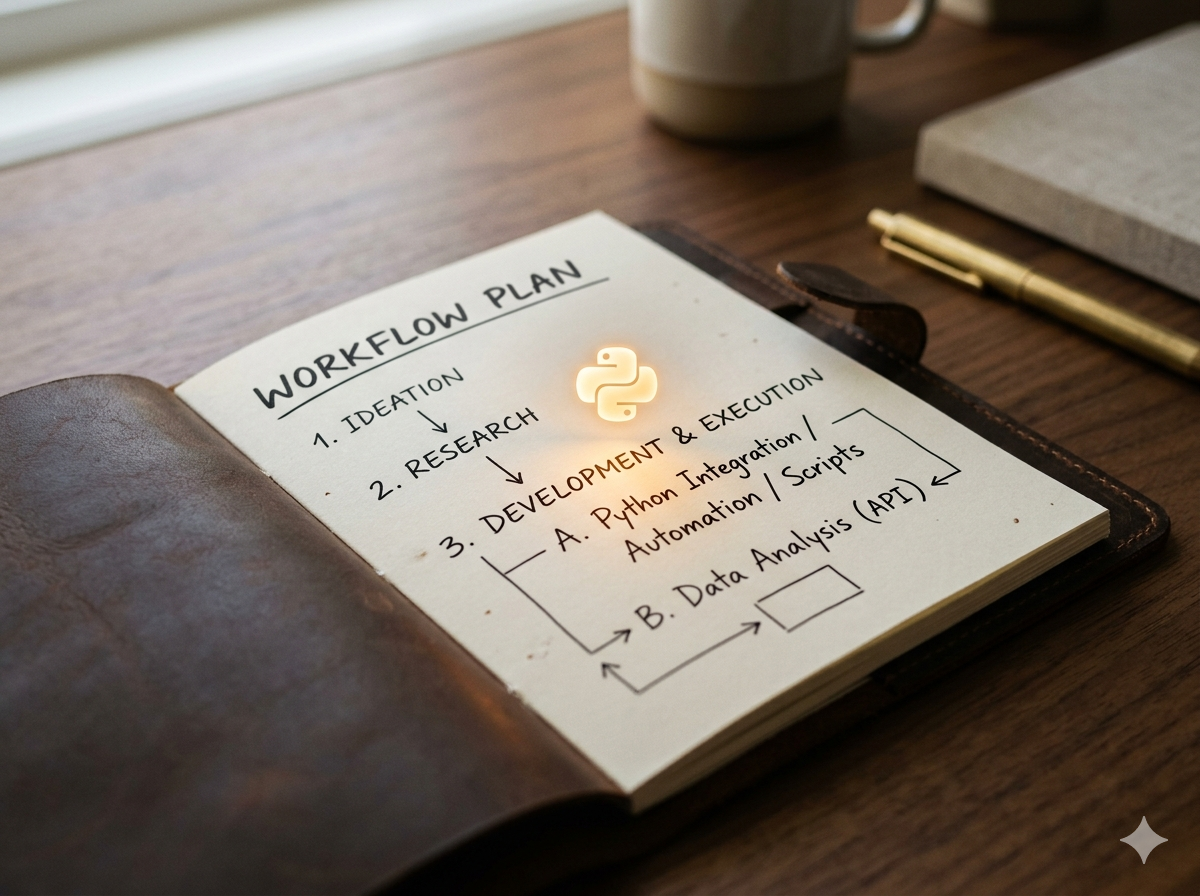 WORKFLOW PLAN
1. IDEATION
2. RESEARCH
3. DEVELOPMENT & EXECUTION
A. Python Integration /
Automation / Scripts
B. Data Analysis (API)